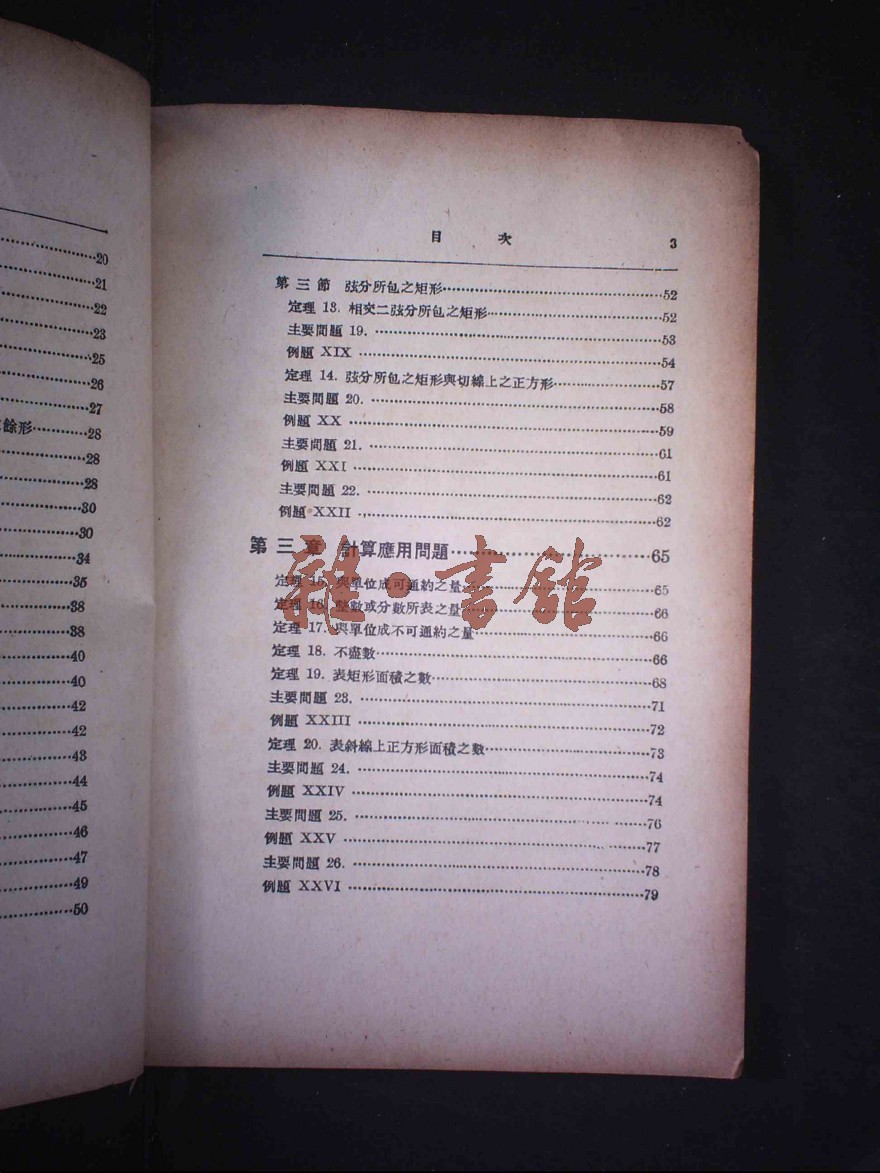 20
21
22
23
25
26
27
餘形············28
28
28
30
30
34
35
38
38
40
40
42
42
43
44
45
46
47
49
50
目 次 3
第三節 弦分所包之矩形············52
定理 13. 相交二弦分所包之矩形············52
主要問題 19. ············53
例題 XIX ············54
定理 14. 弦分所包之矩形與切線上之正方形············57
主要問題 20. ············58
例題 XX ············59
主要問題 21. ············61
例題 XXI ············61
主要問題 22. ············62
例題 XXII ············62
第三章 計算應用問題············65
定理 15. 與單位成可通約之量············65
定理 16. 整數或分數所表之量············66
定理 17. 與單位成不可通約之量············66
定理 18. 不盡數············66
定理 19. 表矩形面積之數············68
主要問題 23. ············71
例題 XXIII ············72
定理 20. 表斜線上正方形面積之數············73
主要問題 24. ············74
例題 XXIV ············74
主要問題 25. ············76
例題 XXV ············77
主要問題 26. ············78
例題 XXVI ············79
雜·書館